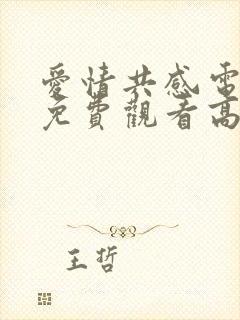 愛情共感電
免費觀看高
王哲